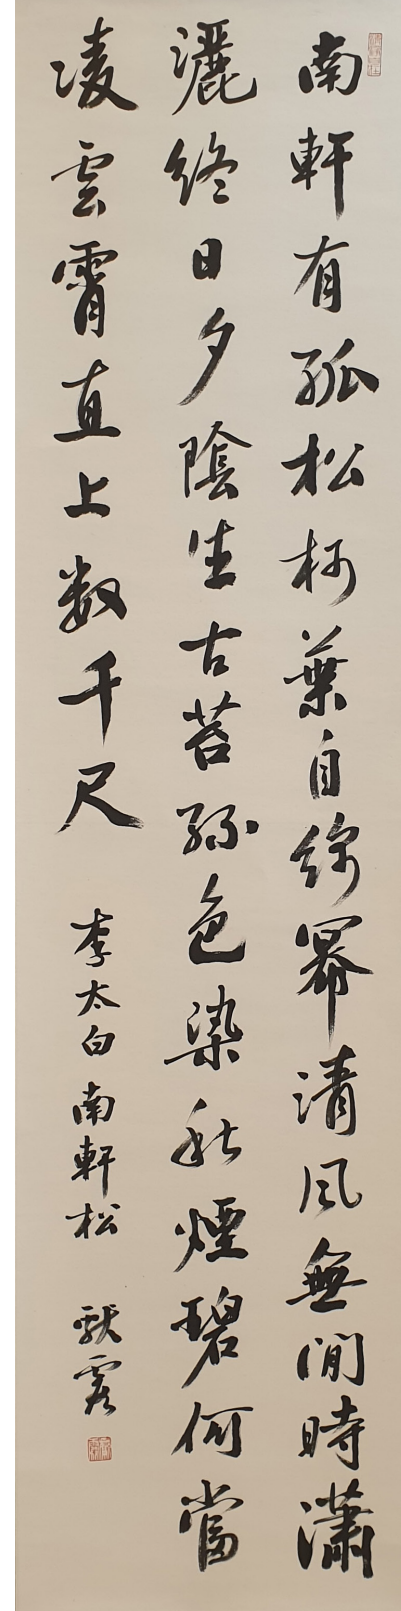 南軒有孤松柯葉自綿冪清風無閒時瀟
灑終日夕陰生古苔綠色染秋煙碧何當
凌雲霄直上数千尺 李太白 南軒松